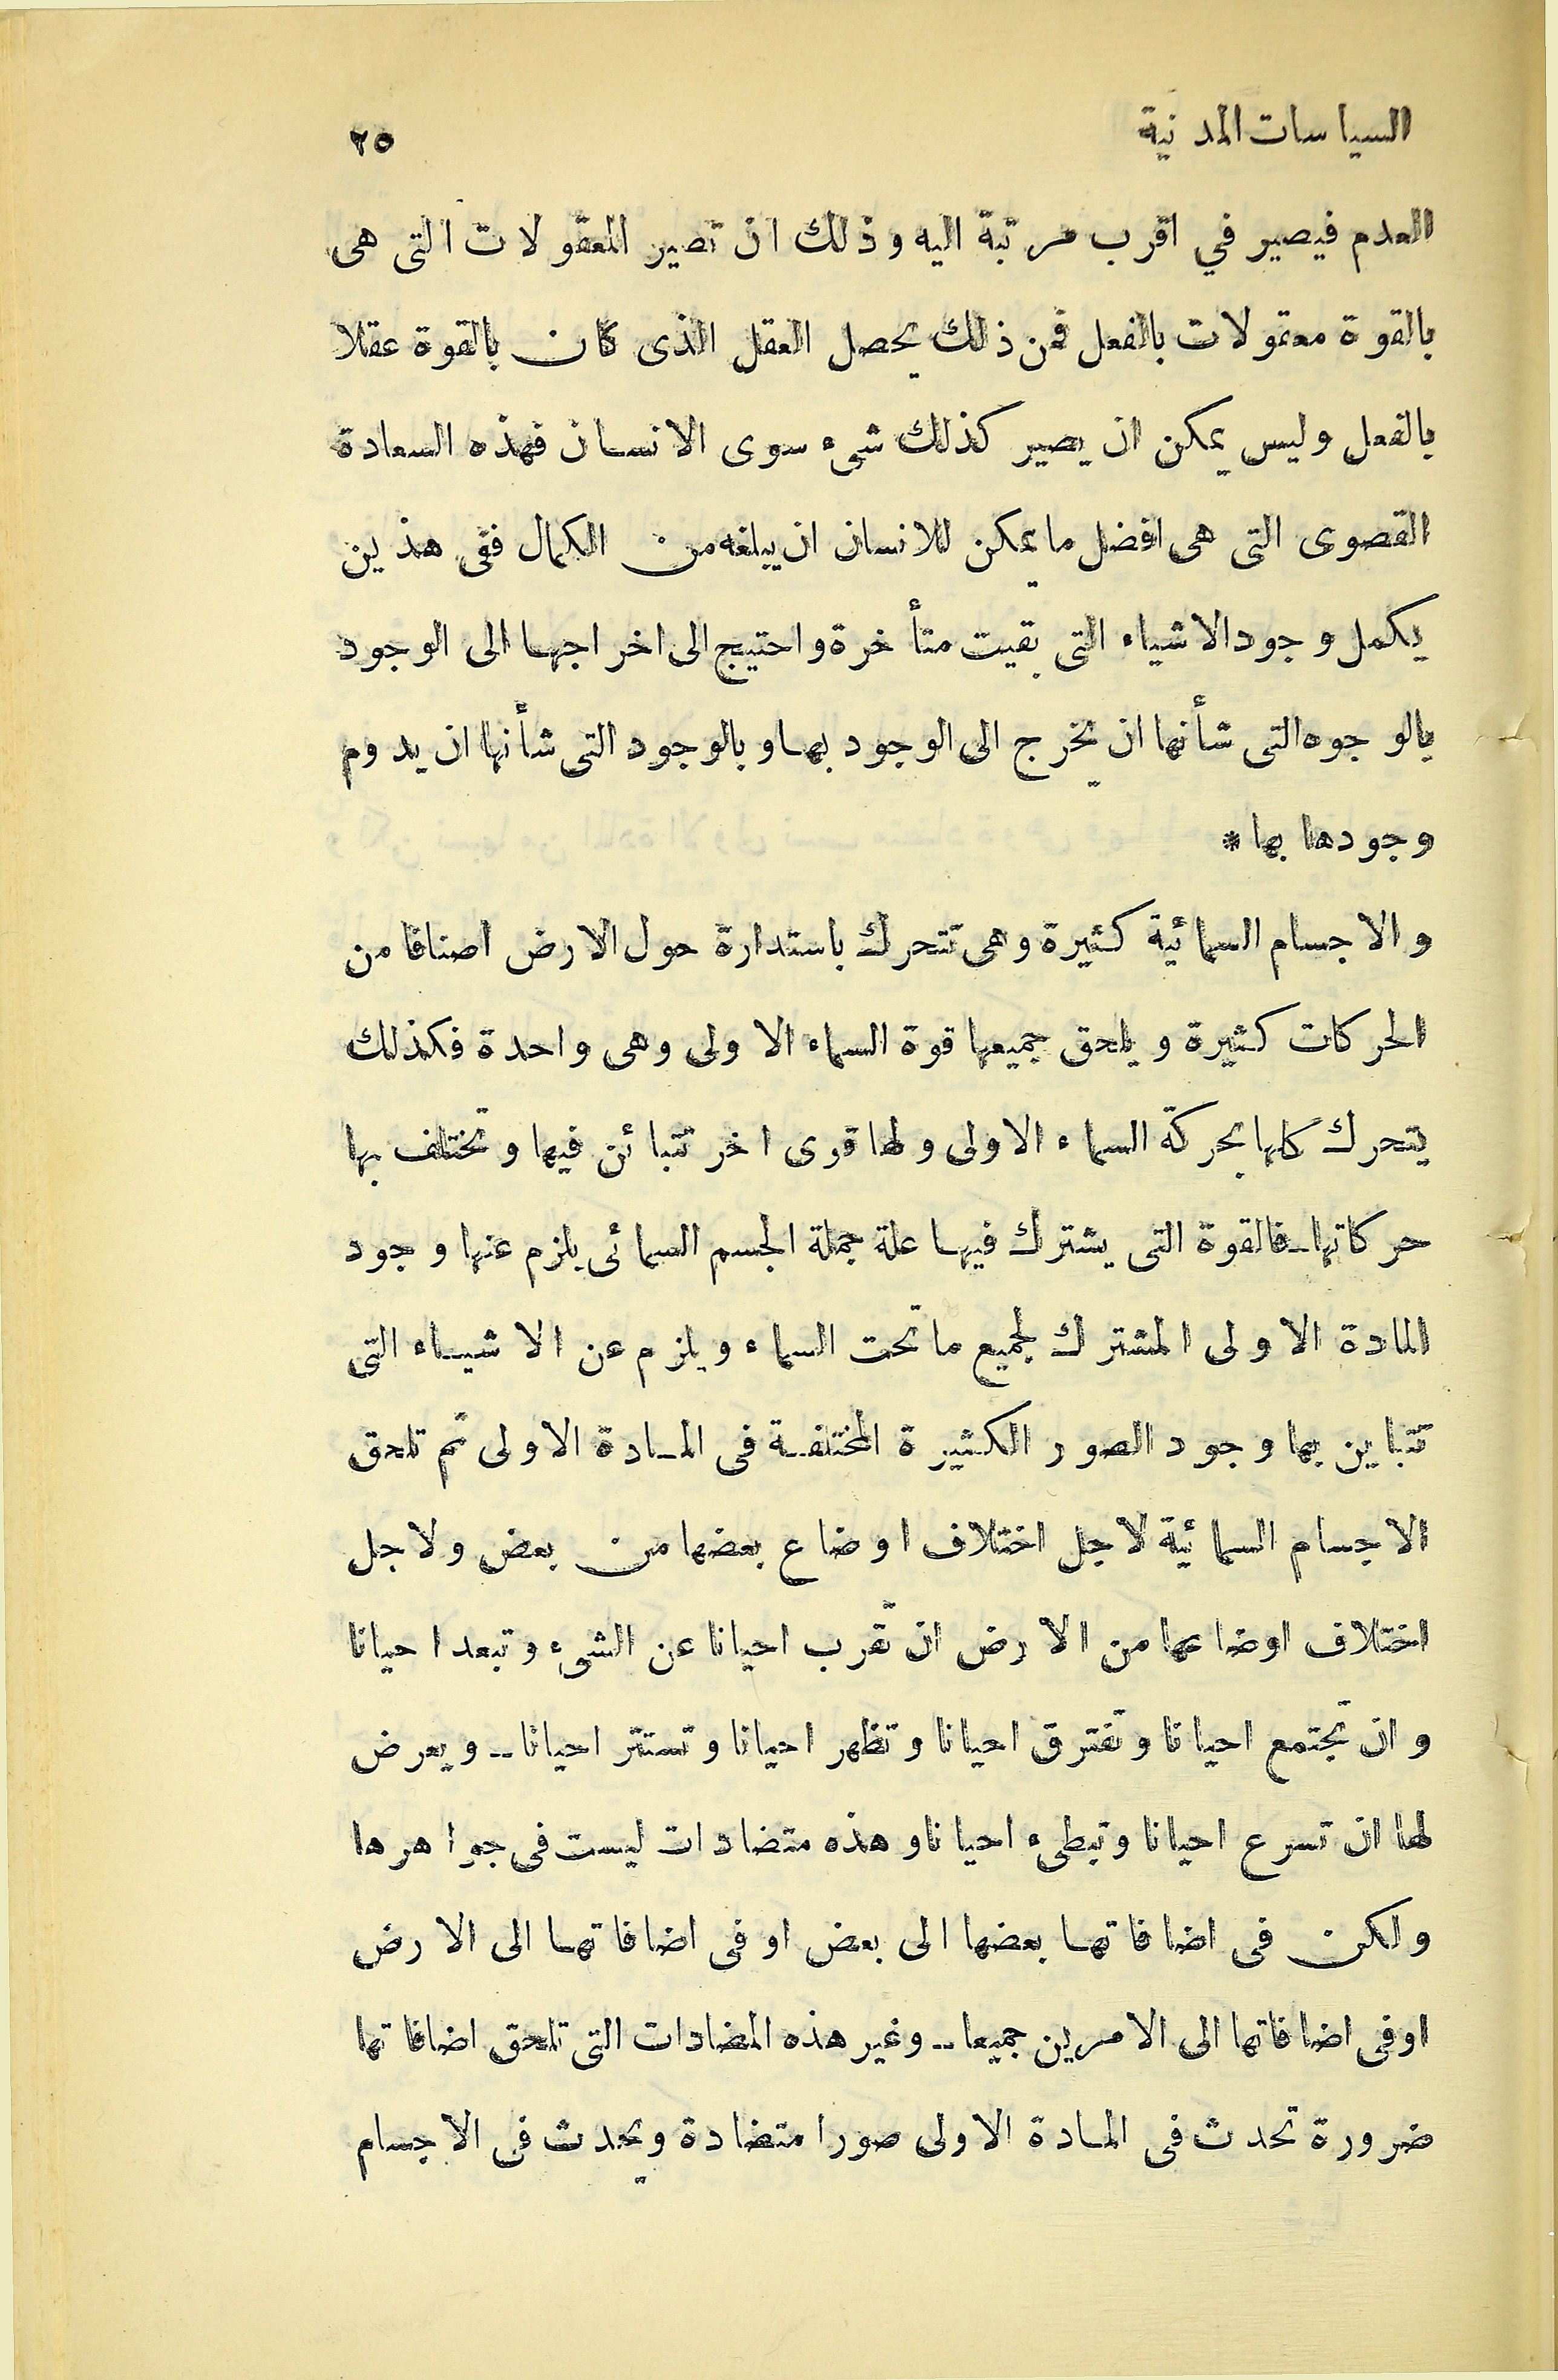 السياسات المدنية ٢٥
العدم فيصير في اقرب مرتبة اليه وذلك ان تصير المعقولات التى هى
بالقوة معقولات بالفعل فمن ذلك يحصل العقل الذى كان بالقوة عقلا
بالفعل وليس يمكن ان يصير كذلك شىء سوى الانسان فهذه السعادة
القصوى التى هى افضل ما يمكن للانسان ان يبلغه من الكمال ففى هذين
يكمل وجود الاشياء التى بقيت متأخرة واحتيج الى اخراجها الى الوجود
بالوجوه التى شأنها ان يخرج الى الوجود بها و بالوجود التى شأنها ان يدوم
وجودها بها *
والاجسام السمائية كثيرة وهى تتحرك باستدارة حول الارض اصنافا من
الحركات كثيرة و يلحق جميعها قوة السماء الاولى وهى واحدة فكذلك
يتحرك كلها بحركة السماء الاولى ولها قوى اخر تتبائن فيها وتختلف بها
حركاتها ـ فالقوة التى يشترك فيها علة جملة الجسم السمائى يلزم عنها وجود
المادة الاولى المشترك لجميع ما تحت السماء و يلزم عن الاشياء التى
تتباين بها وجود الصور الكثيرة المختلفة فى المادة الاولى ثم تلحق
الاجسام السمائية لاجل اختلاف اوضاع بعضها من بعض ولاجل
اختلاف اوضاعها من الارض ان تقرب احيانا عن الشىء وتبعد احيانا
وان تجتمع احيانا وتفترق احيانا وتظهر احيانا وتستتر احيانا ــ ويعرض
لها ان تسرع احيانا وتبطىء احيانا وهذه متضادات ليست فى جواهرها
ولكن فى اضافاتها بعضها الى بعض او فى اضافاتها الى الارض
اوفى اضافاتها الى الامرين جميعا ــ وغير هذه المضادات التى تلحق اضافاتها
ضرورة تحدث فى المادة الاولى صورا متضادة ويحدث فى الاجسام